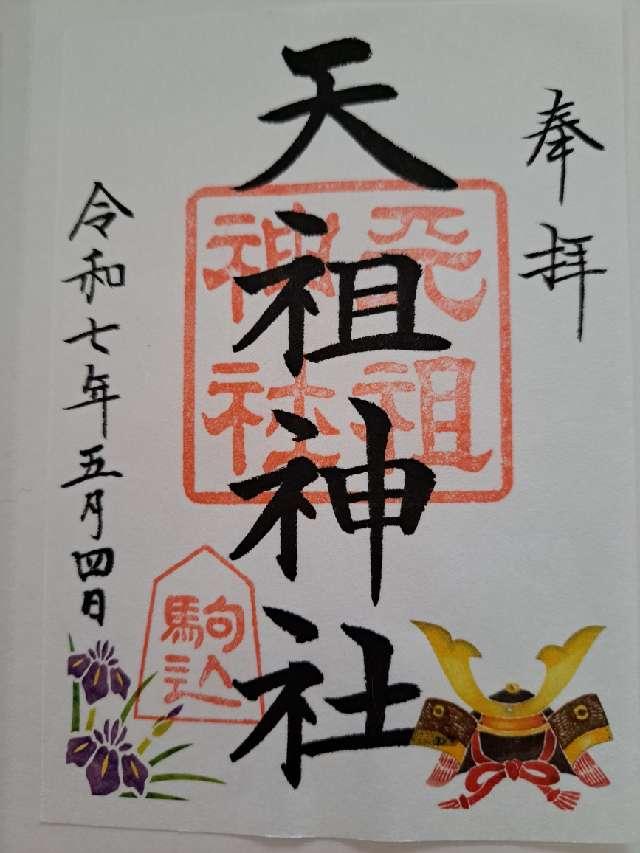 奉拝
天祖神社
天祖神社
駒込
令和七年五月四日